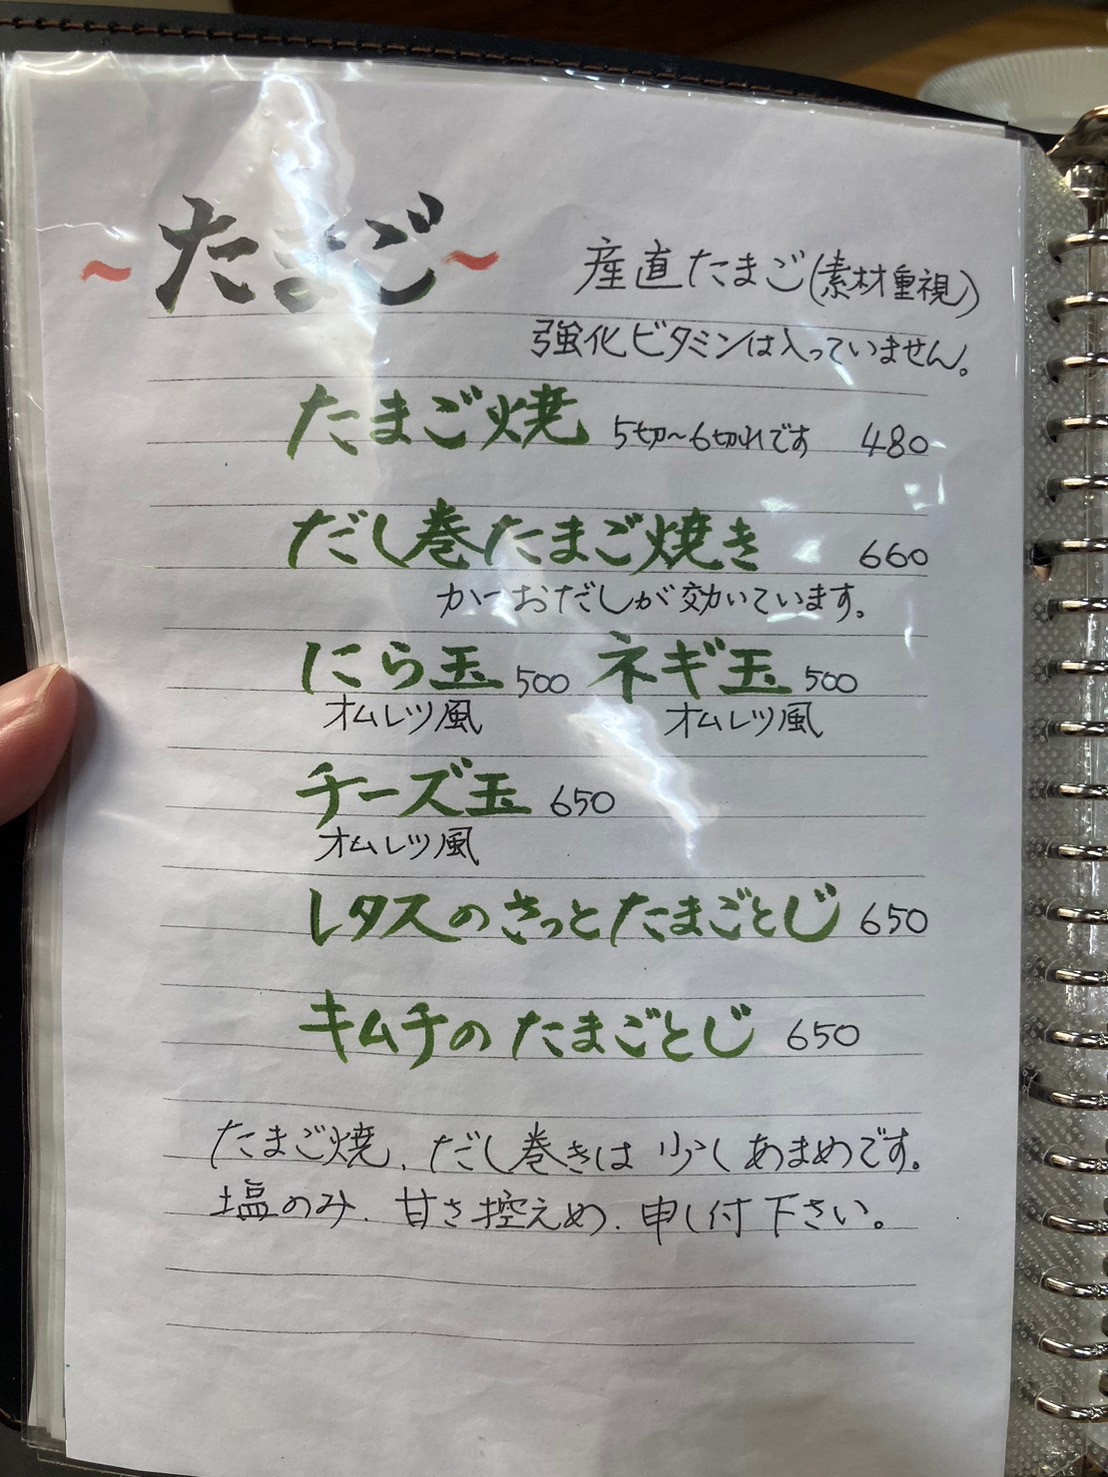 ～たまご～
産直たまご(素材重視)
強化ビタミンは入っていません。
たまご焼 5切～6切れです 480
だし巻たまご焼き 660
かつおだしが効いています。
にら玉 500 ネギ玉 500
オムレツ風 オムレツ風
チーズ玉 650
オムレツ風
レタスのさっとたまごとじ 650
キムチのたまごとじ 650
たまご焼、だし巻きは少しあまめです。
塩のみ、甘さ控えめ、申し付下さい。